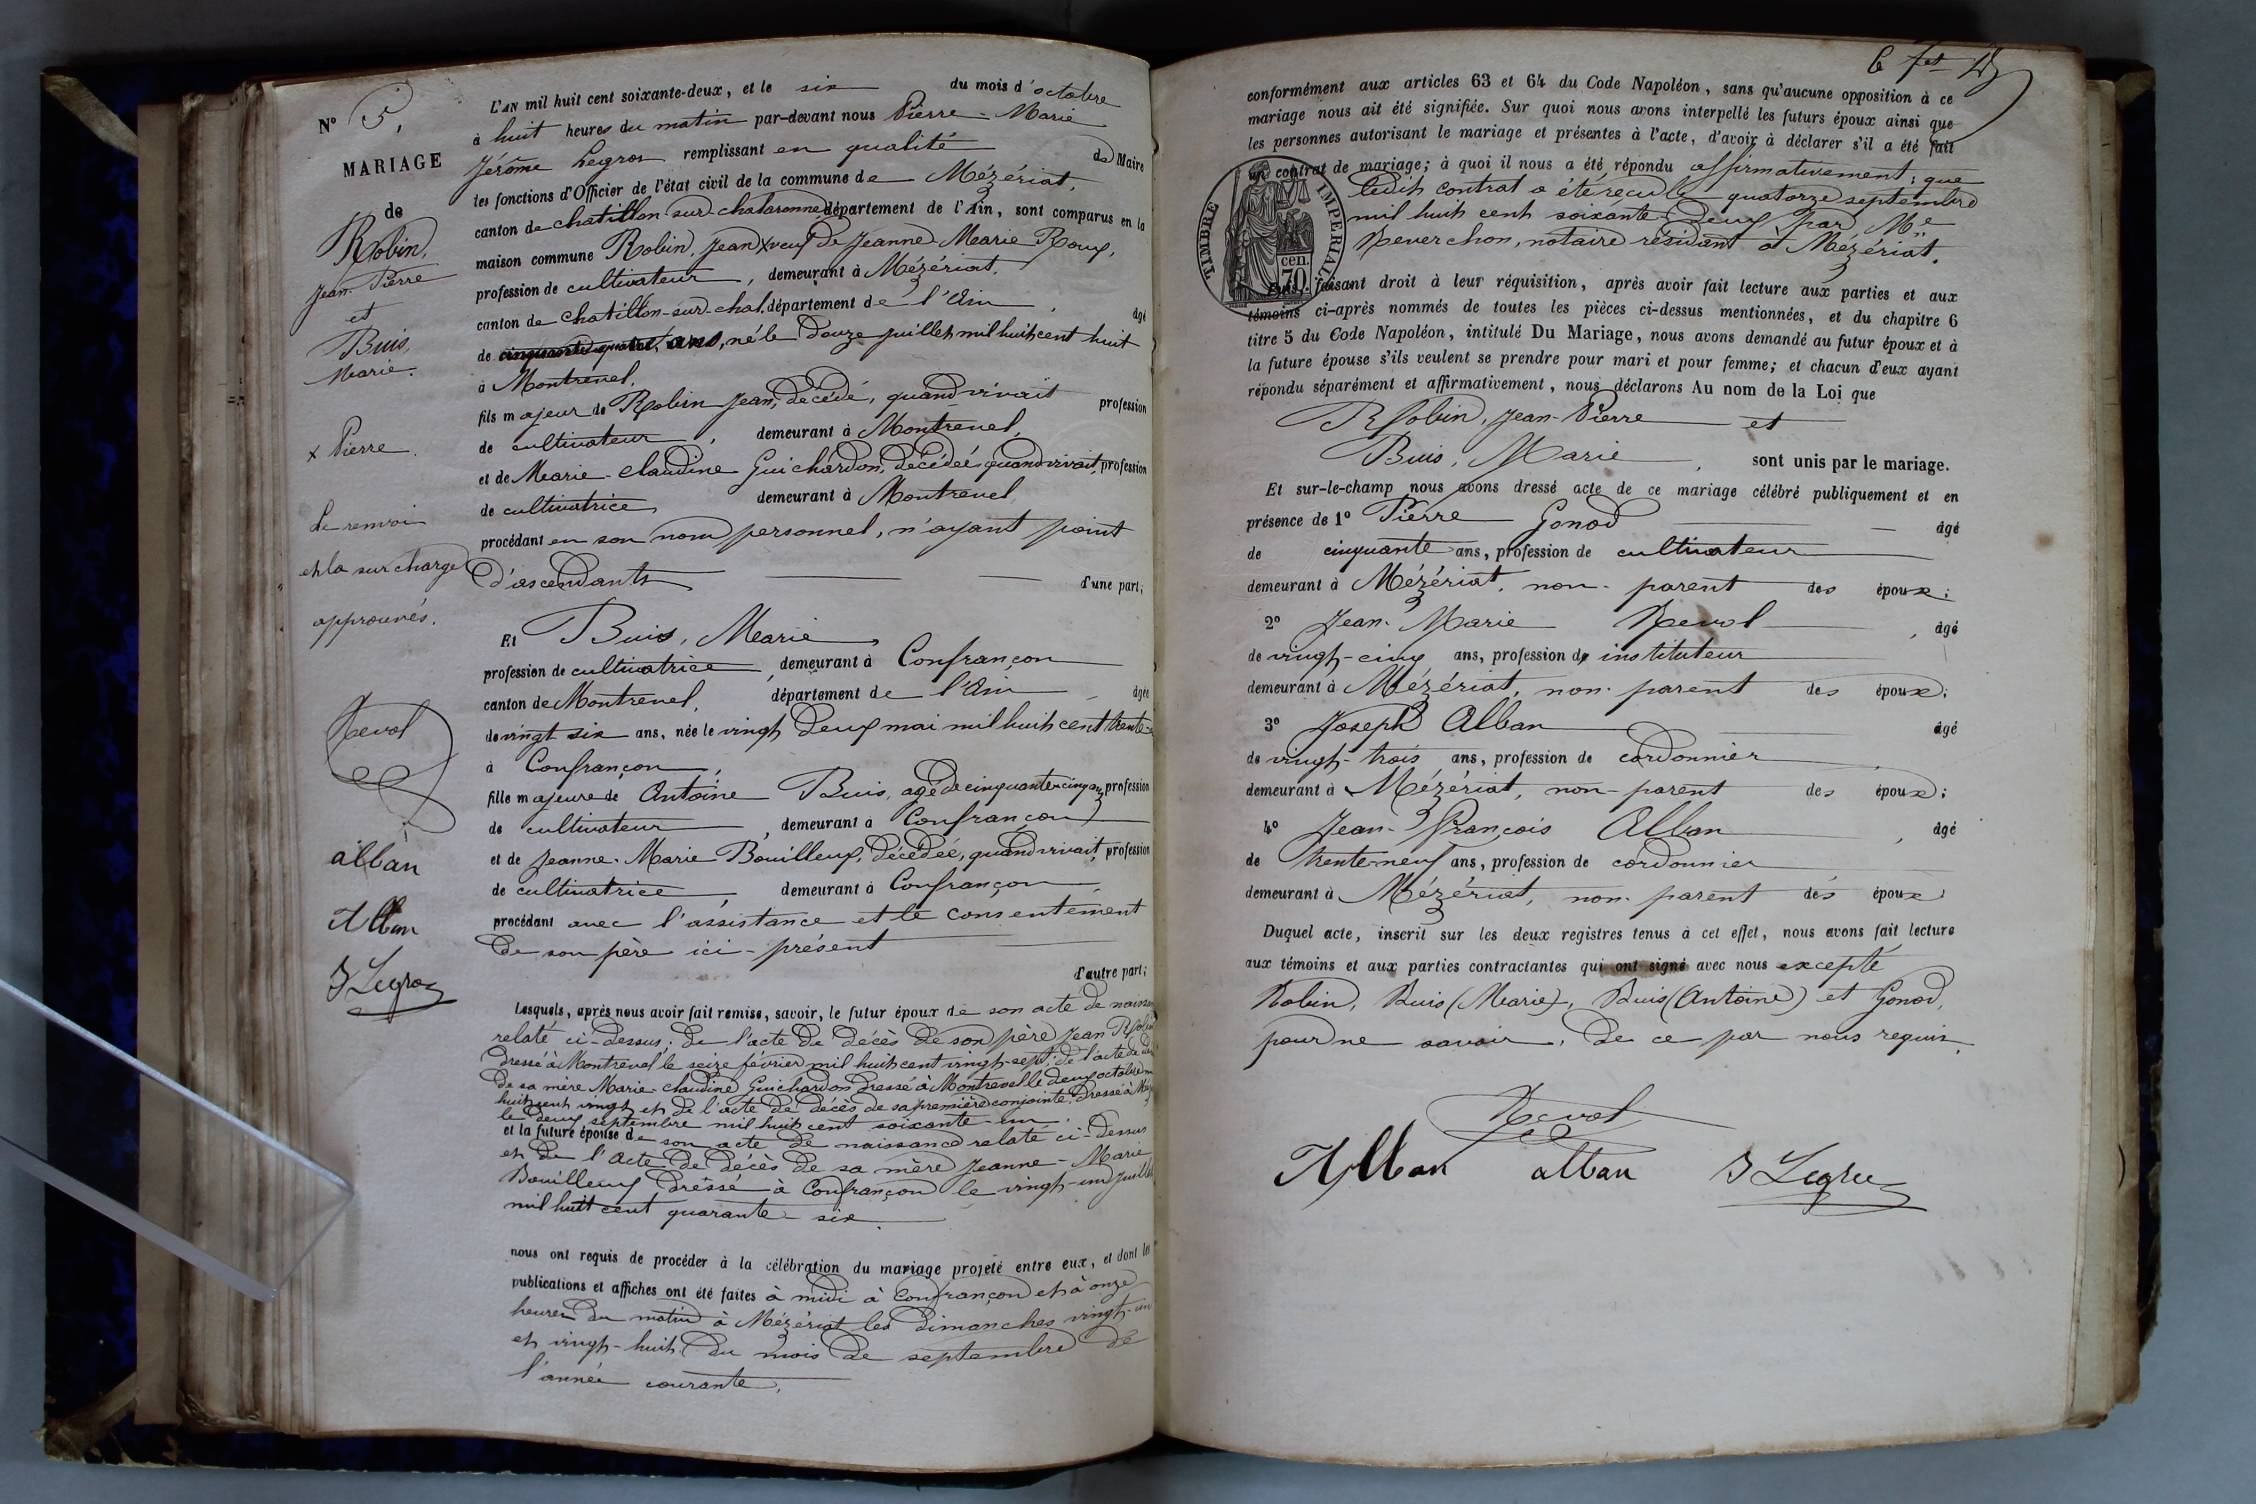 N° 5.
MARIAGE
de
Robin,
Jean-Pierre
et
Buis,
Marie.
x Pierre.
Le renvoi
et la surcharge
approuvés.
Revol
alban
Alban
J Legros
L'AN mil huit cent soixante-deux, et le six du mois d'octobre
à huit heures du matin par-devant nous Pierre-Marie
Jérôme Legros remplissant en qualité de Maire
les fonctions d'Officier de l'état civil de la commune de Mézériat,
canton de chatillon-sur-chalaronne département de l'Ain, sont comparus en la
maison commune Robin, Jean x veuf de Jeanne-Marie Roux,
profession de cultivateur, demeurant à Mézériat,
canton de chatillon-sur-chal. département de l'Ain, âgé
de cinquante-quatre ans, né le douze juillet mil huit cent huit
à Montrevel,
fils majeur de Robin Jean, décédé, quand vivait profession
de cultivateur, demeurant à Montrevel,
et de Marie-claudine Guichardon, décédée, quand vivait, profession
de cultivatrice, demeurant à Montrevel
procédant en son nom personnel, n'ayant point
d'ascendants d'une part;
Et Buis, Marie,
profession de cultivatrice, demeurant à Confrançon
canton de Montrevel, département de l'Ain, âgée
de vingt six ans, née le vingt deux mai mil huit cent trente-
à Confrançon,
fille majeure de Antoine Buis, agé de cinquante-cinq ans profession
de cultivateur, demeurant à Confrançon
et de Jeanne-Marie Bouilloux, décédée, quand vivait, profession
de cultivatrice, demeurant à Confrançon
procédant avec l'assistance et le consentement
de son père ici-présent
d'autre part;
Lesquels, après nous avoir fait remise, savoir, le futur époux de son acte de naissan
relaté ci-dessus; de l'acte de décès de son père Jean Robin
dressé à Montrevel le seize février mil huit cent vingt-sept; de l'acte de
de sa mère Marie-claudine Guichardon dressé à Montrevel le deux octobre
huit cent vingt et de l'acte de décès de sa première conjointe, dressé à
le deux septembre mil huit cent soixante-un.
et la future épouse de son acte de naissance relaté ci-dessus
et de l'acte de décès de sa mère Jeanne-Marie
Bouilloux dressé à Confrançon le vingt-un juillet
mil huit cent quarante-six.
nous ont requis de procéder à la célébration du mariage projeté entre eux, et dont les
publications et affiches ont été faites à midi à Confrançon et à onze
heures du matin à Mézériat les dimanches vingt-un
et vingt-huit du mois de septembre de
l'année courante.
conformément aux articles 63 et 64 du Code Napoléon, sans qu'aucune opposition à ce
mariage nous ait été signifiée. Sur quoi nous avons interpellé les futurs époux ainsi que
les personnes autorisant le mariage et présentes à l'acte, d'avoir à déclarer s'il a été fait
un contrat de mariage; à quoi il nous a été répondu affirmativement; que
ledit contrat a été reçu le quatorze septembre
mil huit cent soixante-deux par Me
Peverchon, notaire résidant à Mézériat.
TIMBRE IMPÉRIAL
70 cen.
Puis, faisant droit à leur réquisition, après avoir fait lecture aux parties et aux
témoins ci-après nommés de toutes les pièces ci-dessus mentionnées, et du chapitre 6
titre 5 du Code Napoléon, intitulé Du Mariage, nous avons demandé au futur époux et à
la future épouse s'ils veulent se prendre pour mari et pour femme; et chacun d'eux ayant
répondu séparément et affirmativement, nous déclarons Au nom de la Loi que
Robin, Jean-Pierre et
Buis, Marie, sont unis par le mariage.
Et sur-le-champ nous avons dressé acte de ce mariage célébré publiquement et en
présence de 1° Pierre Gonod âgé
de cinquante ans, profession de cultivateur
demeurant à Mézériat, non-parent des époux;
2° Jean-Marie Revol, âgé
de vingt-cinq ans, profession de instituteur
demeurant à Mézériat, non-parent des époux;
3° Joseph Alban âgé
de vingt-trois ans, profession de cordonnier
demeurant à Mézériat, non-parent des époux;
4° Jean-François Alban, âgé
de trente-neuf ans, profession de cordonnier
demeurant à Mézériat, non-parent des époux
Duquel acte, inscrit sur les deux registres tenus à cet effet, nous avons fait lecture
aux témoins et aux parties contractantes qui ont signé avec nous excepté
Robin, Buis (Marie), Buis (Antoine) et Gonod,
pour ne savoir, de ce par nous requis.
Revol
Alban alban J Legros